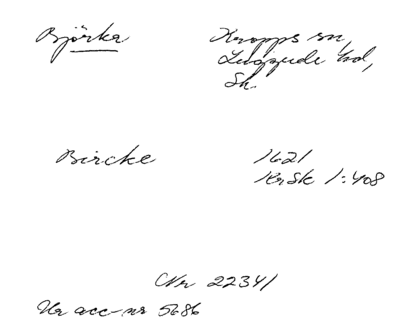 Björka
Kropps sn,
Luggude hd,
Sk.
Bircke
1621
KrSk 1:408
Nr 22341
Ur acc-nr 5686